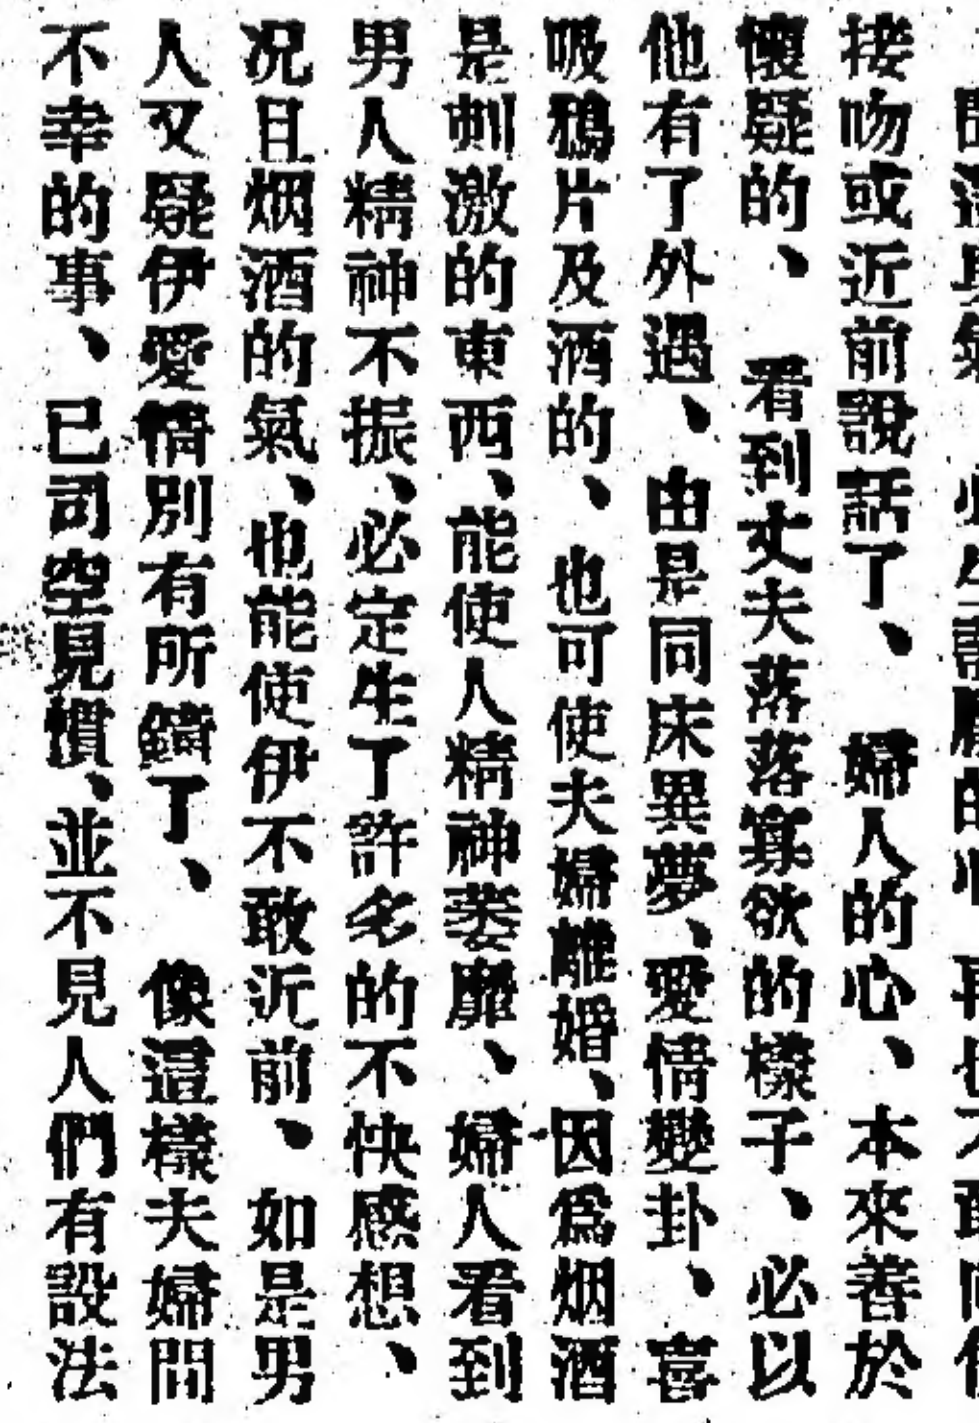 接吻或近前說話了、婦人的心、本來善於
懷疑的、看到丈夫落落寡欲的樣子、必以
他有了外遇、由是同床異夢、愛情變卦、喜
吸鴉片及酒的、也可使夫婦離婚、因爲烟酒
是刺激的東西、能使人精神萎靡、婦人看到
男人精神不振、必定生了許多的不快感想、
况且烟酒的氣、也能使伊不敢近前、如是男
人又疑伊愛情別有所鑄了、像這樣夫婦間
不幸的事、已司空見慣、並不見人們有設法